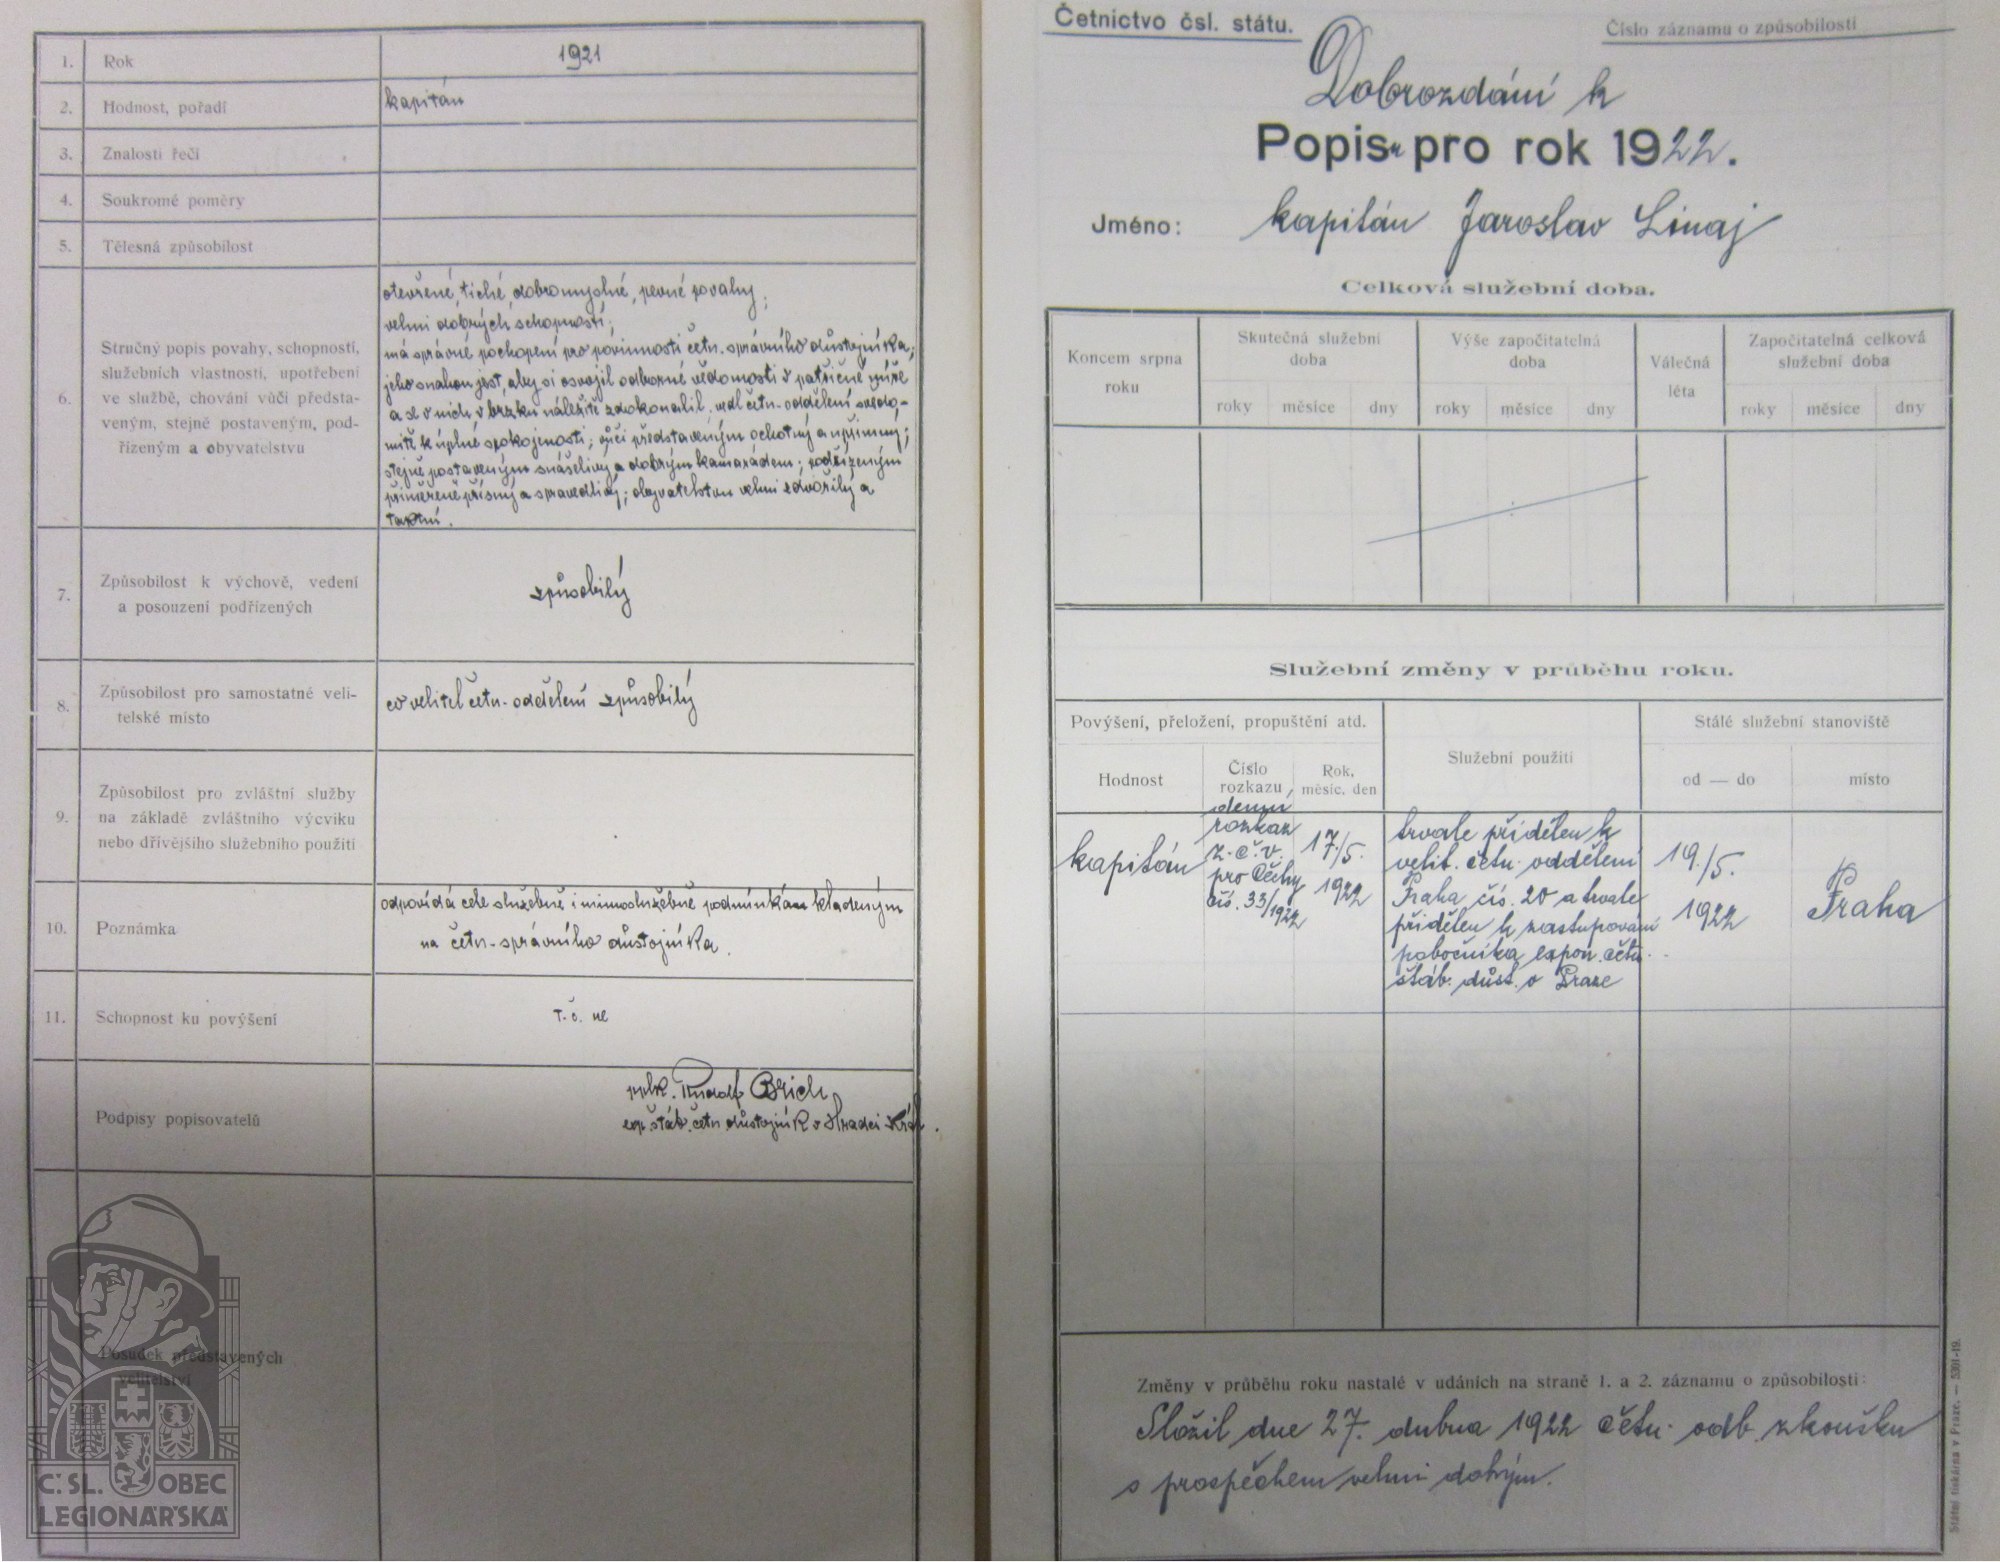 1. Rok 1921
2. Hodnost, pořadí kapitán
3. Znalosti řečí
4. Soukromé poměry
5. Tělesná způsobilost
6. Stručný popis povahy, schopností,
služebních vlastností, upotřebení
ve službě, chování vůči předsta-
veným, stejně postaveným, pod-
řízeným a obyvatelstvu
otevřené, tiché, dobromyslné, pevné povahy;
velmi dobrých schopností;
má správné pochopení pro povinnosti četn. správního důstojníka;
jeho snahou jest, aby si osvojil odborné vědomosti v patřičné míře
a se v nich v brzku náležitě zdokonalil; vedl četn. oddělení svědo-
mitě k úplné spokojenosti; vůči představeným ochotný a upřímný;
stejně postaveným snášelivý a dobrým kamarádem; podřízeným
přiměřeně přísný a spravedlivý; obyvatelstvu velmi zdvořilý a
taktní.
7. Způsobilost k výchově, vedení
a posouzení podřízených
způsobilý
8. Způsobilost pro samostatné veli-
telské místo
co velitel četn. oddělení způsobilý
9. Způsobilost pro zvláštní služby
na základě zvláštního výcviku
nebo dřívějšího služebního použití
10. Poznámka
odpovídá cele služebně i mimoslužebně podmínkám kladeným
na četn. správního důstojníka.
11. Schopnost ku povýšení t. č. ne
Podpisy popisovatelů
pplk. Rudolf Brich
exp. štáb. četn. důstojník v Hradci Král.
Posudek představených
velitelství
Č. SL. OBEC
LEGIONÁŘSKÁ
Četnictvo čsl. státu.
Číslo záznamu o způsobilosti
Dobrozdání k
Popisu pro rok 1922.
Jméno: kapitán Jaroslav Linaj
Celková služební doba.
Koncem srpna
roku
Skutečná služební
doba
Výše započitatelná
doba
Válečná
léta
Započitatelná celková
služební doba
roky měsíce dny roky měsíce dny roky měsíce dny
Služební změny v průběhu roku.
Povýšení, přeložení, propuštění atd.
Služební použití
Stálé služební stanoviště
Hodnost
Číslo
rozkazu
Rok,
měsíc, den
od — do
místo
kapitán
denní
rozkaz
z. č. v.
pro Čechy
čís. 33/1922
17./5.
1922
trvale přidělen k
velit. četn. oddělení
Praha čís. 20 a trvale
přidělen k zastupování
pobočníka expon. četn.
štáb. důst. v Praze
19./5.
1922
Praha
Změny v průběhu roku nastalé v udáních na straně 1. a 2. záznamu o způsobilosti:
Složil dne 27. dubna 1922 četn. odb. zkoušku
s prospěchem velmi dobrým.
Státní tiskárna v Praze. — 5301-19.